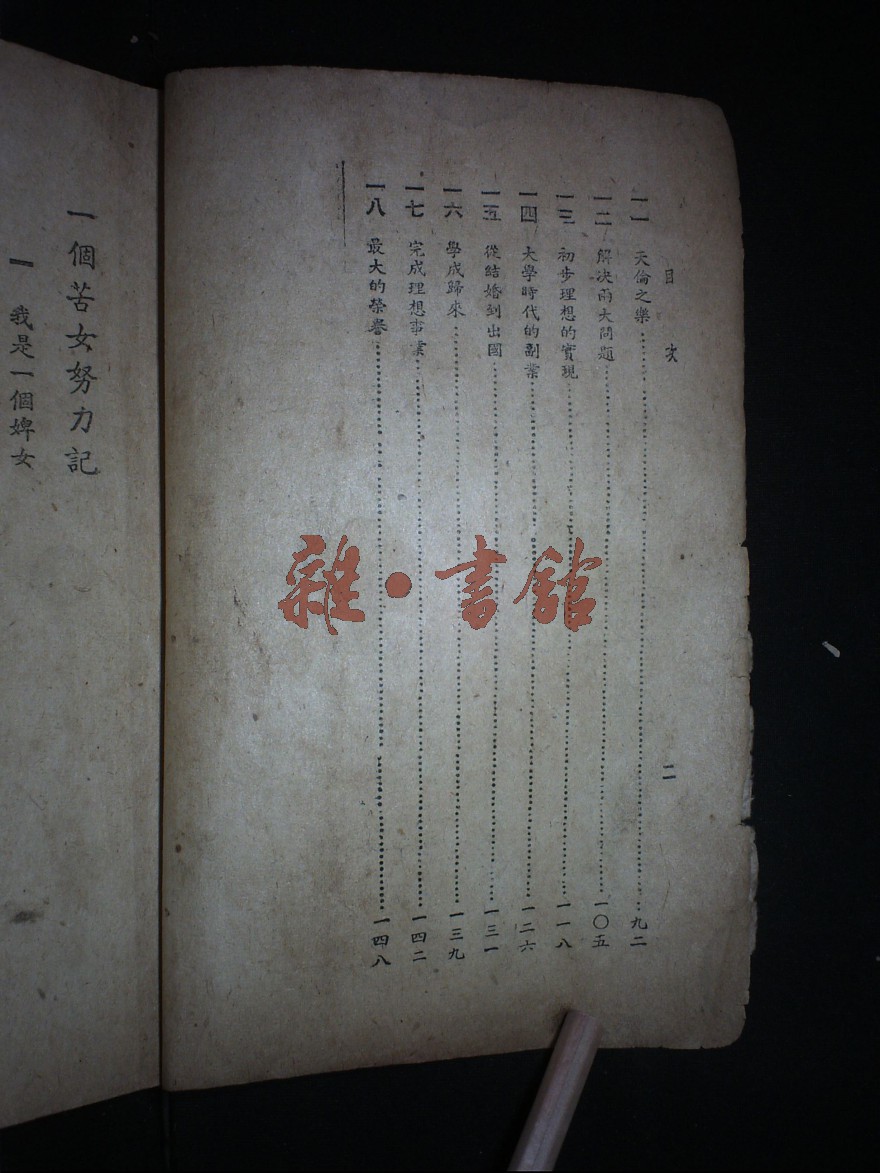 目次
二
一一 天倫之樂……九二
一二 解決兩大問題……一〇五
一三 初步理想的實現……一一八
一四 大學時代的副業……一二六
一五 從結婚到出國……一三一
一六 學成歸來……一三九
一七 完成理想事業……一四二
一八 最大的榮譽……一四八
一個苦女努力記
一 我是一個婢女
雜·書館